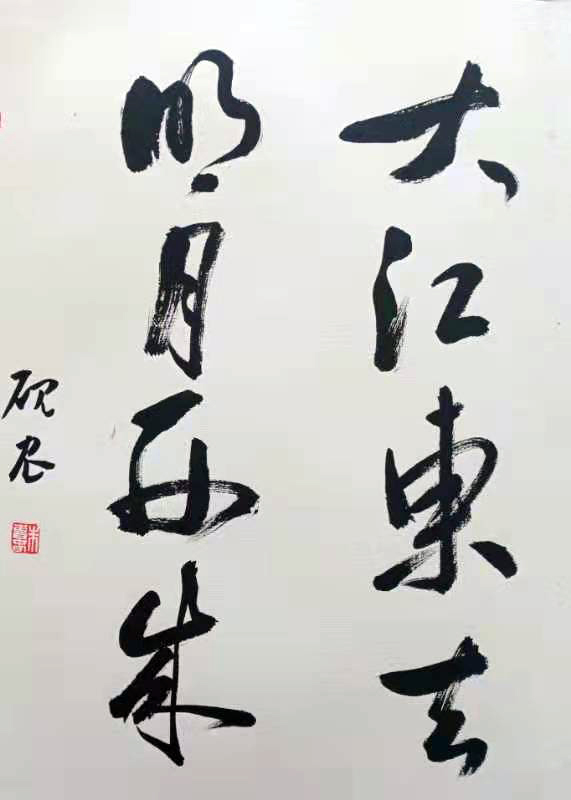 大江東去
明月西來
砚农